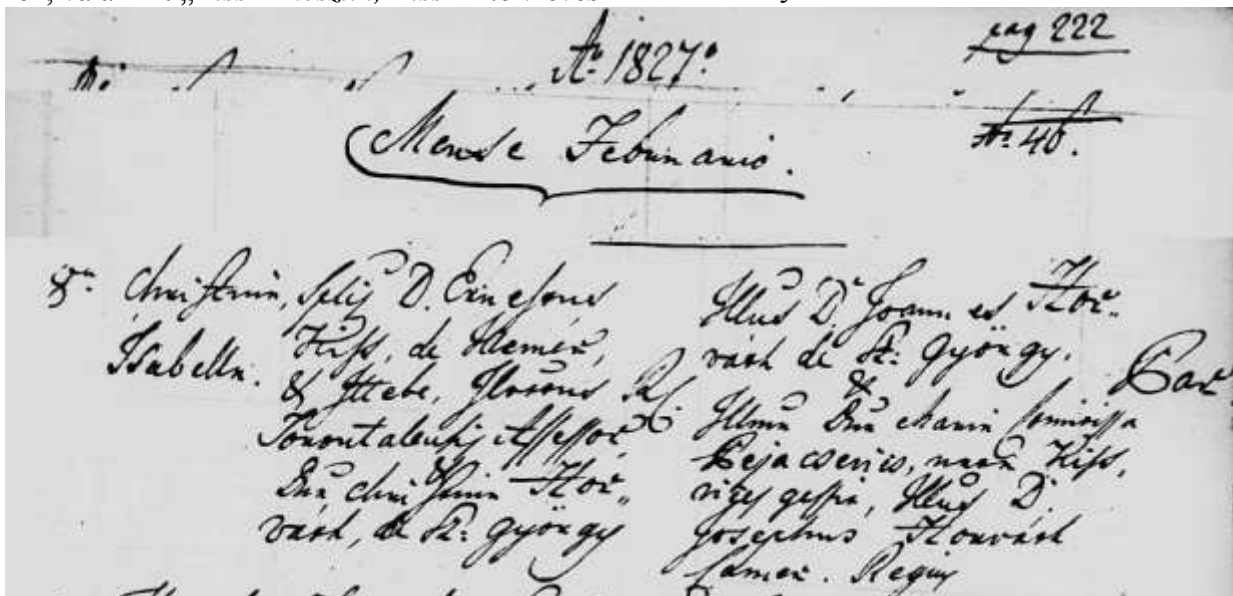 Aº 1827º
pag 222
Nº 40.
Mense Februario.
8ª Christina, filia D. Ernestus
Isabella. Kiss, de Nemér,
& Ittebe, Com
Torontalensis Assessor
&
Dna Christina Hor„
váth, de Sz: György
Illus D. Joannes Hor„
váth de Sz: György.
&
Illma Dna Maria Comitissa
Pejacsevics, nata Kiss,
vices gessit, Illus D.
Josephus Horváth
Camer. Regius